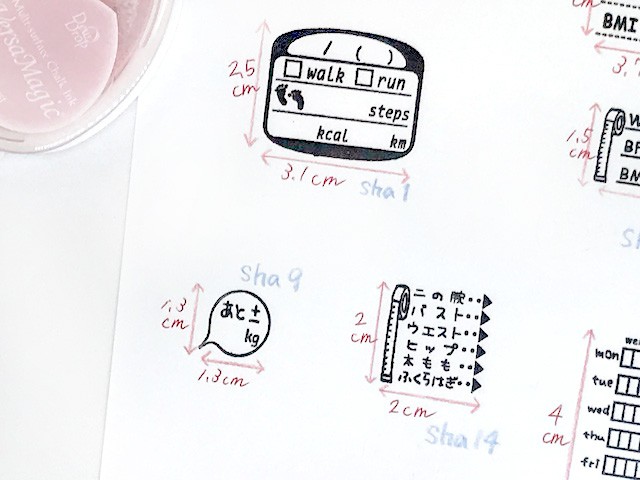 Multi-surface Chalk Ink
VersaMagic
Dew
Drop
2.5
cm
/ ( )
□ walk □ run
steps
kcal km
3.1cm
sha 1
cm
BMI
3.7
1.5
cm
W
BF
BM
sh
sha 9
1.3
cm
あと±
kg
1.3cm
2
cm
二の腕‥▶
バスト‥▶
ウエスト‥▶
ヒップ‥▶
太もも‥▶
ふくらはぎ‥▶
2cm
sha14
4
cm
we
mon
tue
wed
thu
fri